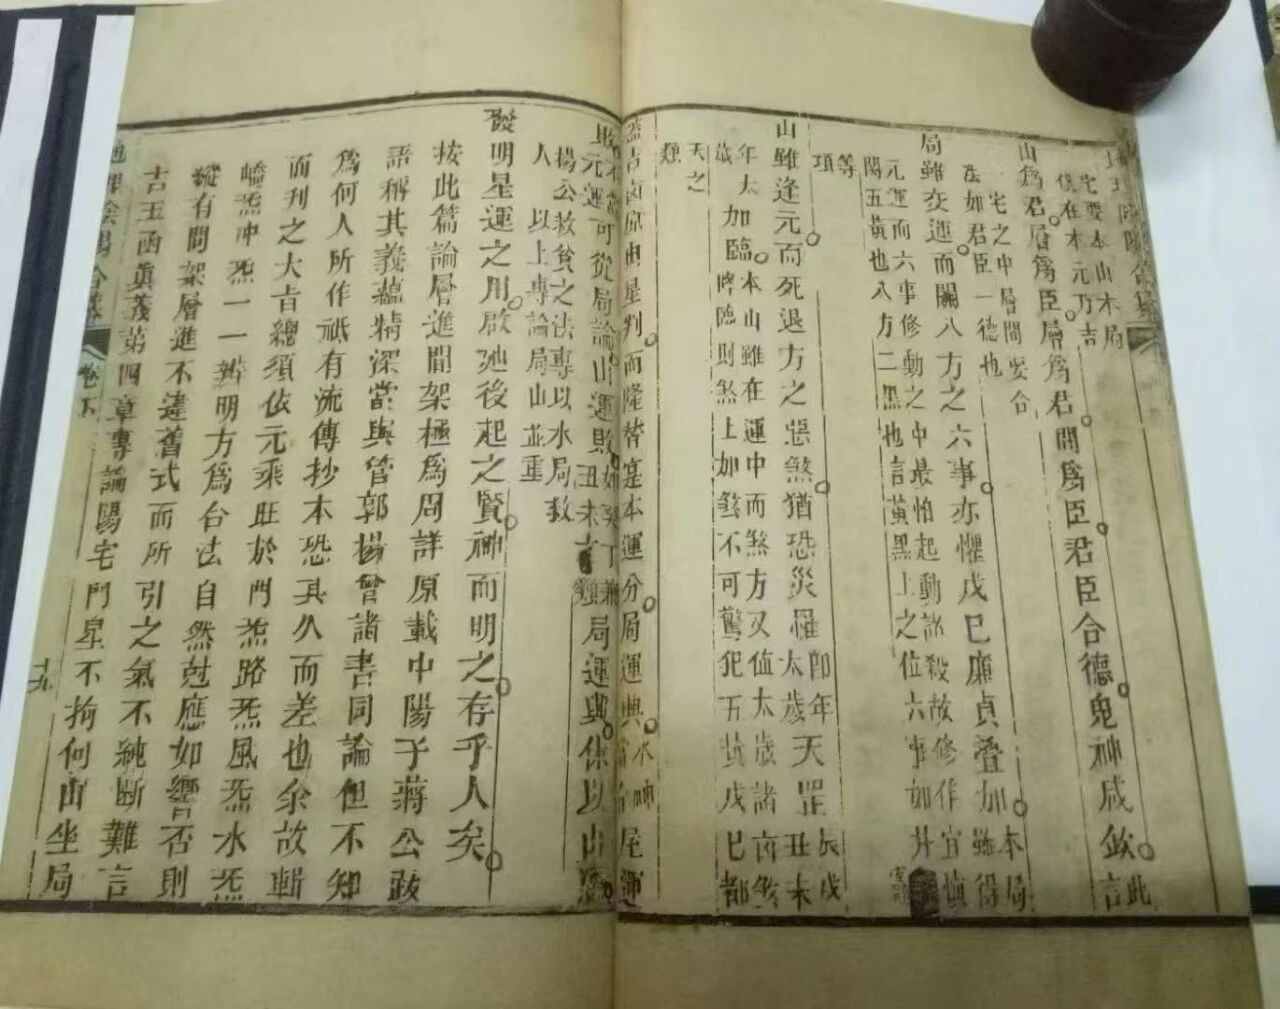 宅要本山本局
俱在本元乃吉
山為君層為臣層為君間為臣君臣合德鬼神咸欽此言
宅之中層間要合
法如君臣一德也
局雖交運而關八方之六事亦懼戊己廉貞疊加本局雖得
元運而六事修動之中最怕起動訟殺故修作宜慎
關五黃也八方二黑也言黃黑上之位六事如井
等項
山雖逢元而死退方之惡煞猶恐災罹太歲即年天罡辰戌丑未
年太歲加臨本山雖在運中而煞方又值太歲諸凶煞
加臨則煞上加煞不可驚犯五黃戊己都
天之類
蓋吉凶原由星判而隆替寔本運分局運興屋運
敗元運可從局論山運敗局運興休以山
楊公救貧之法專以水局救
人以上專論局山並重
發明星運之用啟廸後起之賢神而明之存乎人矣
按此篇論層進間架極為周詳原載中陽子蔣公跋
語稱其義蘊精深當與管郭楊曾諸書同論但不知
為何人所作祇有流傳抄本恐其久而差也余故輯
而刋之大旨總須依元乘旺於門炁路炁風炁水炁
嶠炁冲炁一一辨明方為合法自然尅應如響否則
縱有間架層進不違舊式而所引之氣不純斷難言
吉玉函真義第四章專論陽宅門星不拘何山坐局
卷下
十九